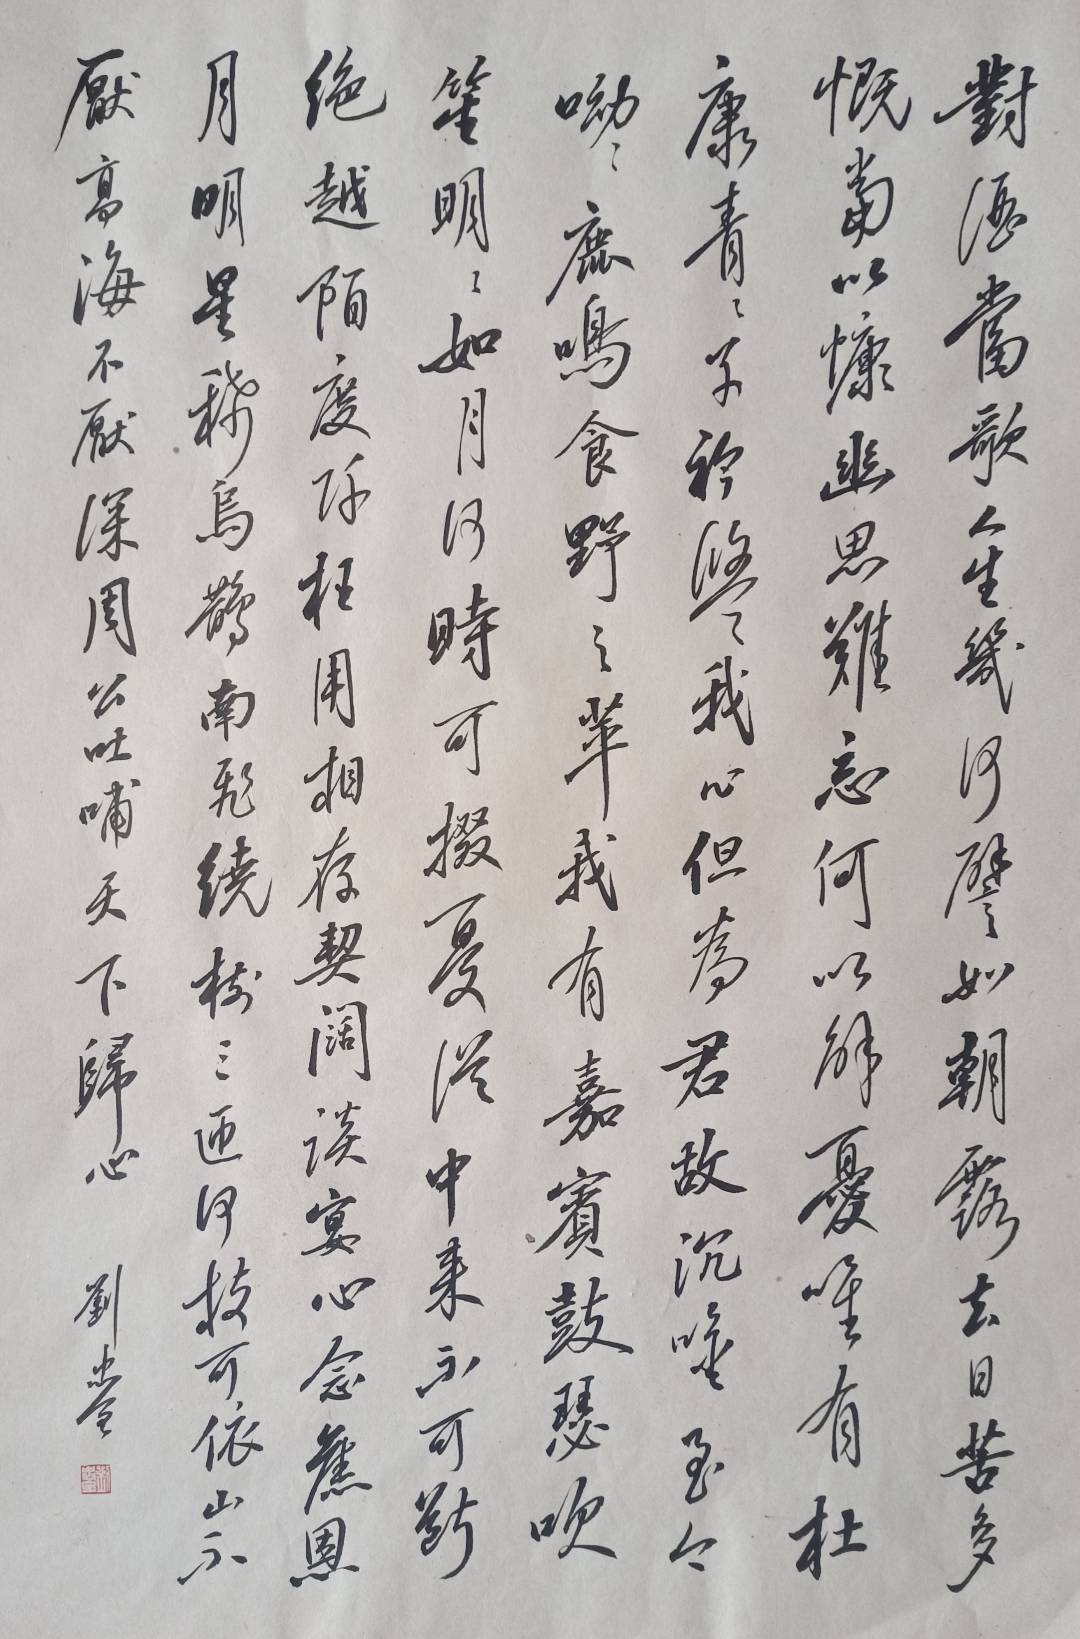 對酒當歌人生幾何譬如朝露去日苦多
慨當以慷幽思難忘何以解憂唯有杜
康青〻子衿悠〻我心但為君故沉吟至今
呦〻鹿鳴食野之苹我有嘉賓鼓瑟吹
笙明〻如月何時可掇憂從中来不可斷
绝越陌度阡枉用相存契闊談宴心念舊恩
月明星稀烏鵲南飛繞樹三匝何枝可依山不
厭高海不厭深周公吐哺天下歸心
劉